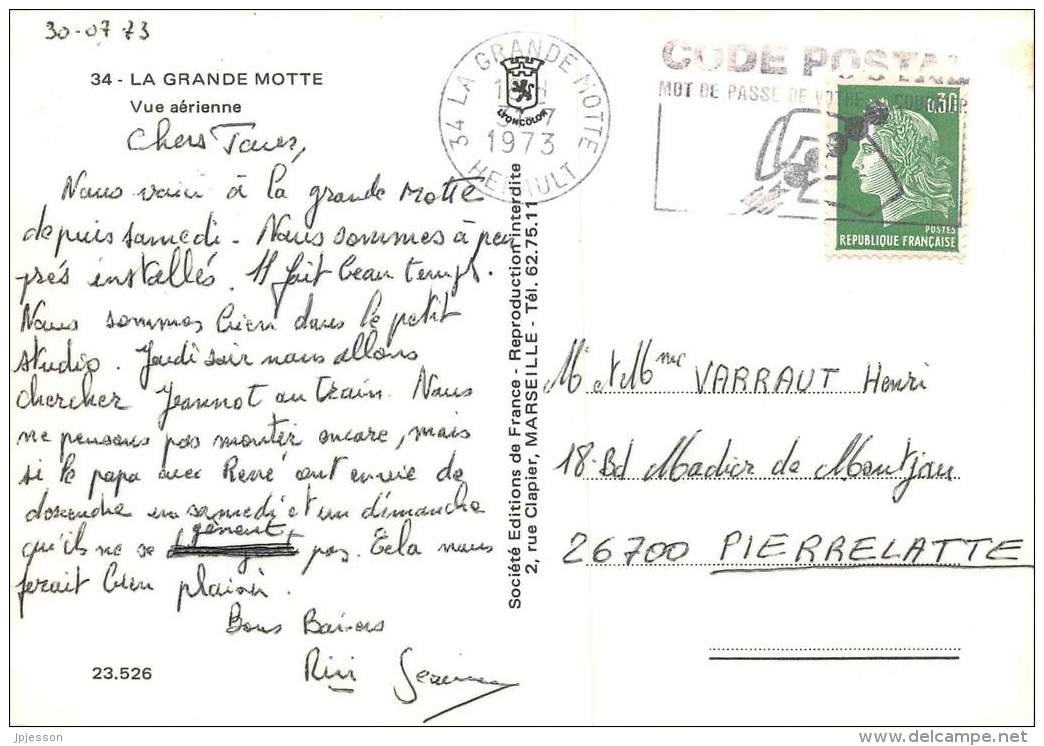 30-07 73
34 - LA GRANDE MOTTE
Vue aérienne
Chers Tous,
Nous voici à la grande Motte
depuis samedi. Nous sommes à peu
près installés. Il fait beau temps.
Nous sommes bien dans le petit
studio. Jeudi soir nous allons
chercher Jeannot au train. Nous
ne pensons pas monter encore, mais
si le papa avec René ont envie de
descendre un samedi et un dimanche
qu'ils ne se gènent pas. Cela nous
ferait bien plaisir.
Bons Baisers
Riri
23.526
Société Editions de France - Reproduction interdite
2, rue Clapier, MARSEILLE - Tél. 62.75.11
LYONCOLOR
34 LA GRANDE MOTTE
1973
HERAULT
CODE POSTAL
MOT DE PASSE DE VOTRE
0,30
POSTES
REPUBLIQUE FRANÇAISE
Mr et Mme VARRAUT Henri
18 Bd Madier de Montjau
26700 PIERRELATTE
jpjesson
www.delcampe.net